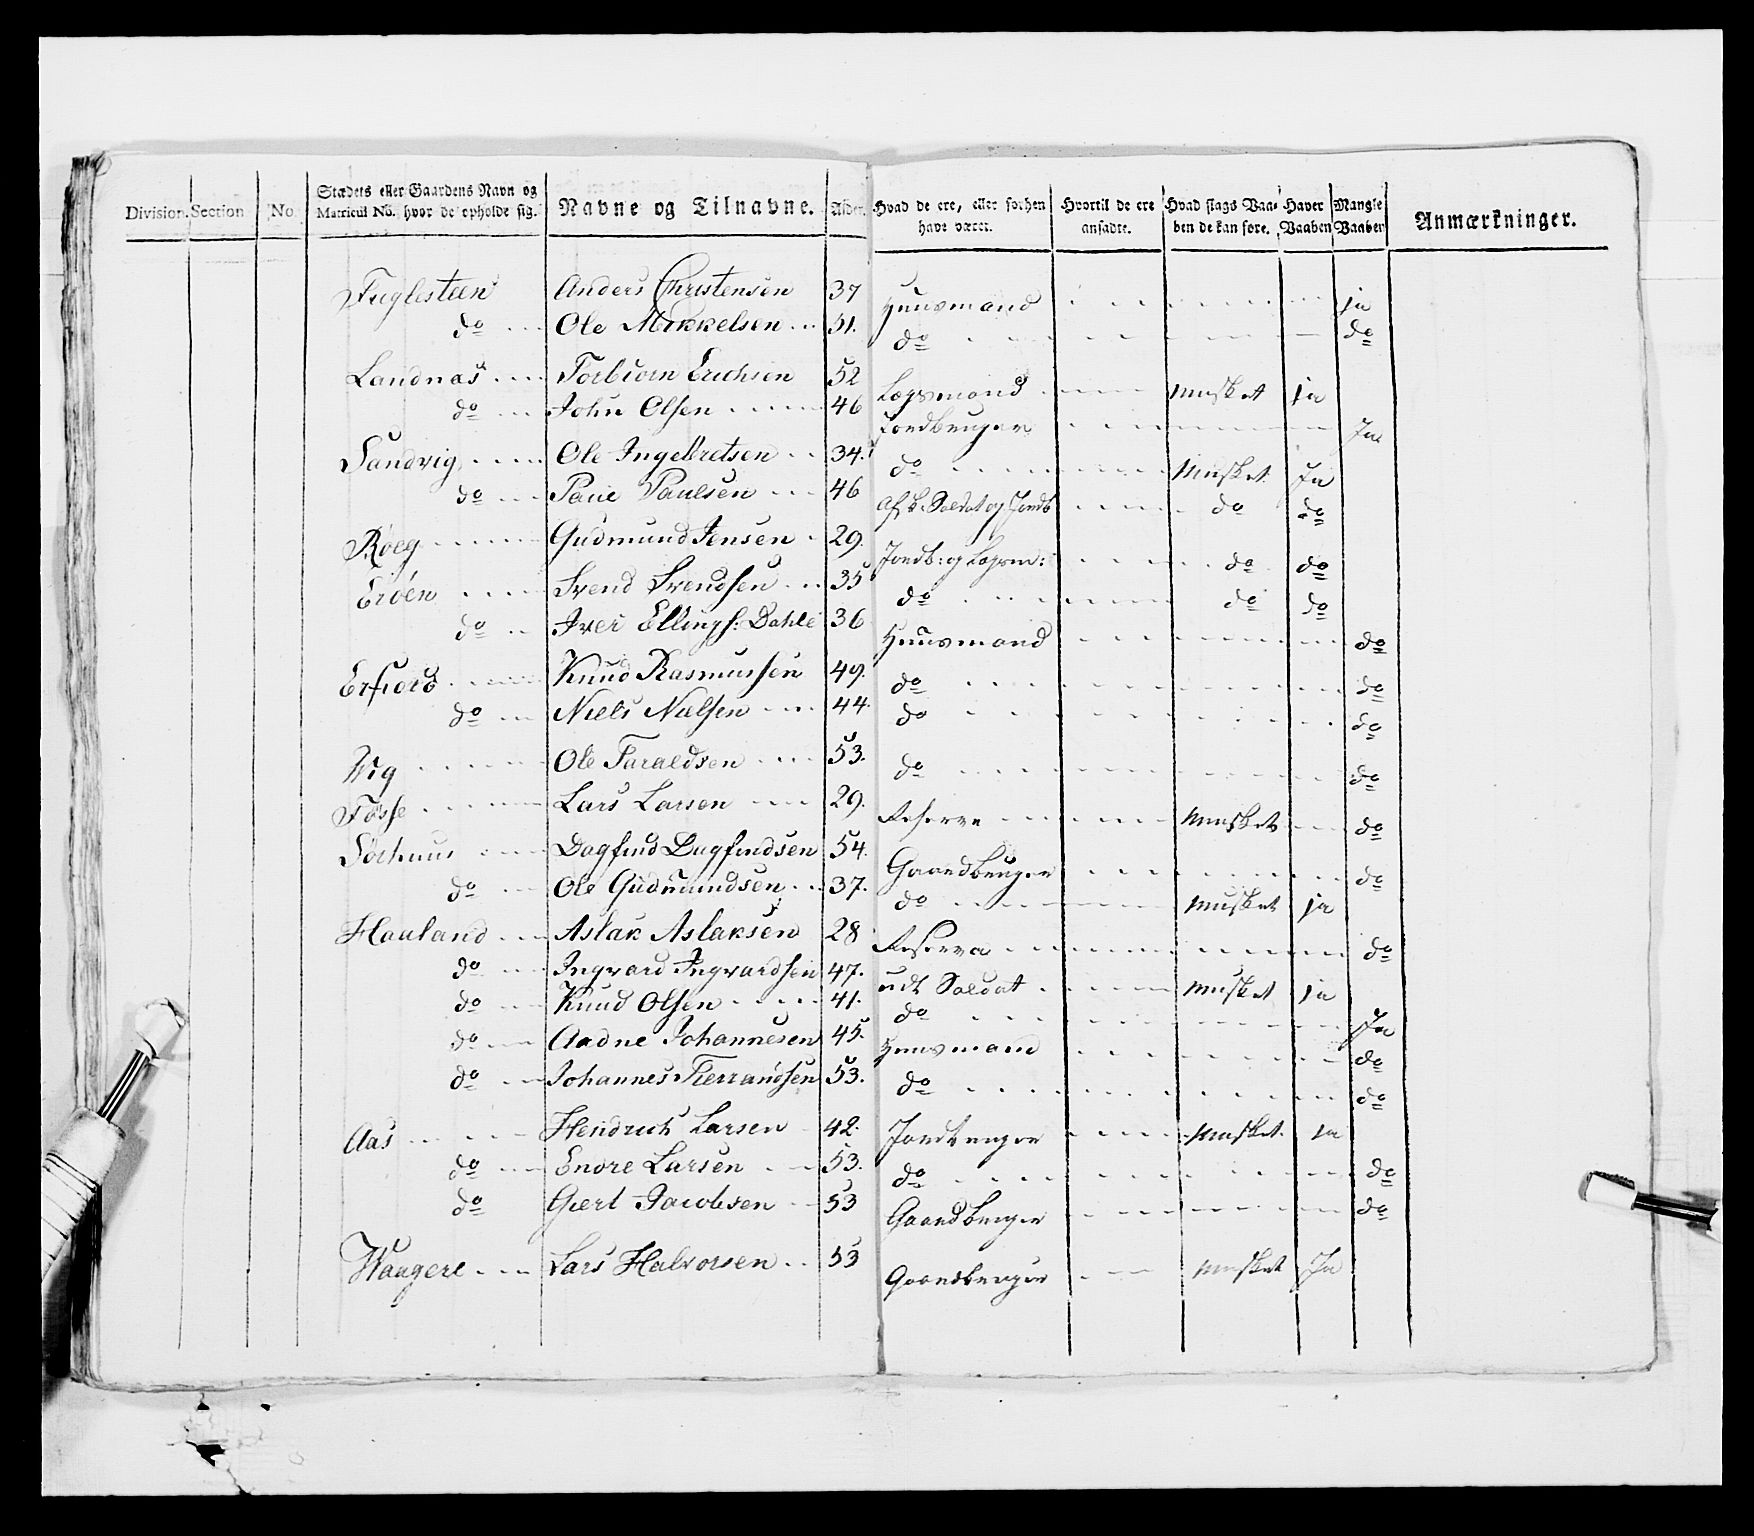 Division. Section No. Stædets eller Gaardens Navn og Matricul No. hvor de opholde sig. Navne og Tilnavne. Alder. Hvad de ere, eller forhen have været. Hvortil de ere ansadte. Hvad slags Vaaben de kan føre. Haver Vaaben Mangle Vaaben Anmærkninger.
Fuglesteen Anders Christensen 37 Huusmand ja
do Ole Mikkelsen 51. do do
Landnas Torbiorn Erichsen 52 Lægsmand Musket ja
do John Olsen 46 Jordbruger Ja
Sandvig Ole Ingebretsen 34. do Musket Ja
do Paue Paulsen 46 Afsk. Soldat og Jordb do do
Røeg Gudmund Jensen 29. Jordb: og Lægsm: do do
Erøen Svend Svendsen 35 do do do
do Iver Ellings: Dahle 36 Huusmand do
Erfiord Knud Rasmussen 49. do do
do Niels Nielsen 44. do do
Wig Ole Taraldsen 53. do do
Fosse Lars Larsen 29. Reserve Musket do
Sørhuus Dagfind Dagfindsen 54. Gaardbruger do
do Ole Gudmundsen 37. do Musket ja
Haaland Aslak Aslaksen 28 Reserve do
do Ingvard Ingvardsen 47. udt Soldat Musket ja
do Knud Olsen 41. do Ja
do Aadne Johannesen 45. Huusmand do
do Johannes Fierrandsen 53. do do
Aas Hendrich Larsen 42. Jordbruger Musket. ja
do Endre Larsen 53. do do
do Giert Jacobsen 53 Gaardbruger do
Waagere Lars Halvorsen 53 Gaardbruger Musket Ja